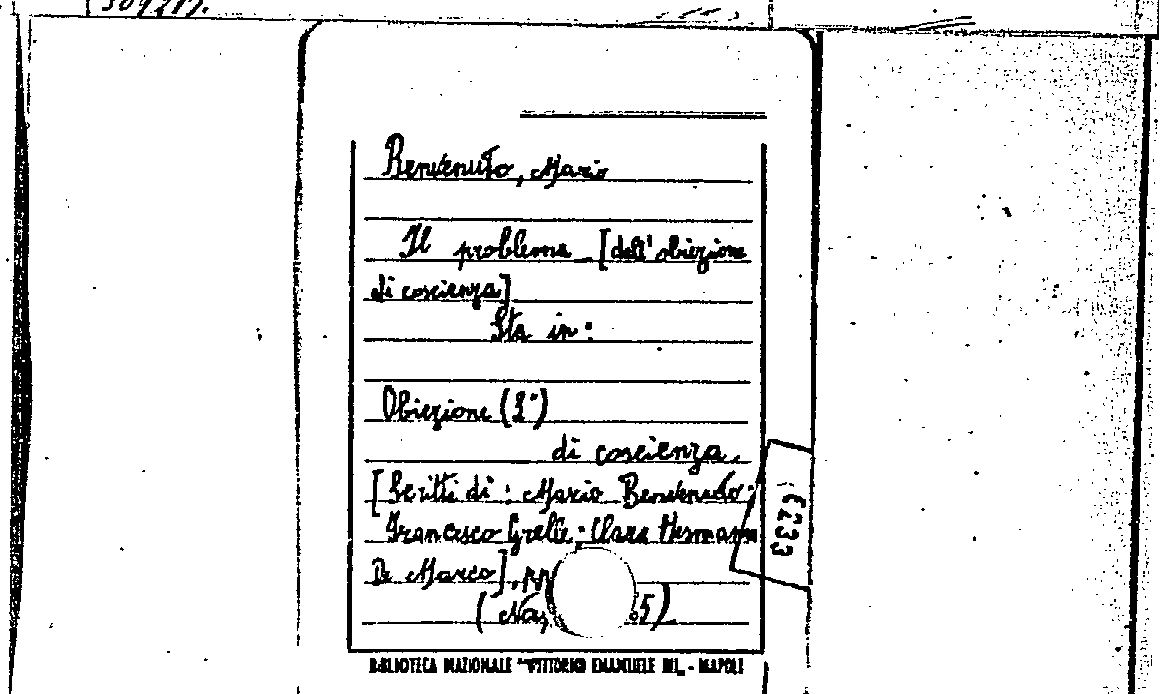 Benvenuto, Mario
Il problema [dell'obiezione
di coscienza]
Sta in:
Obiezione (L')
di coscienza.
[Scritti di: Mario Benvenuto;
Francesco Grelle; Clara Hermann
De Marco], pp
(Na, .5)
6233
BIBLIOTECA NAZIONALE "VITTORIO EMANUELE III„ - NAPOLI